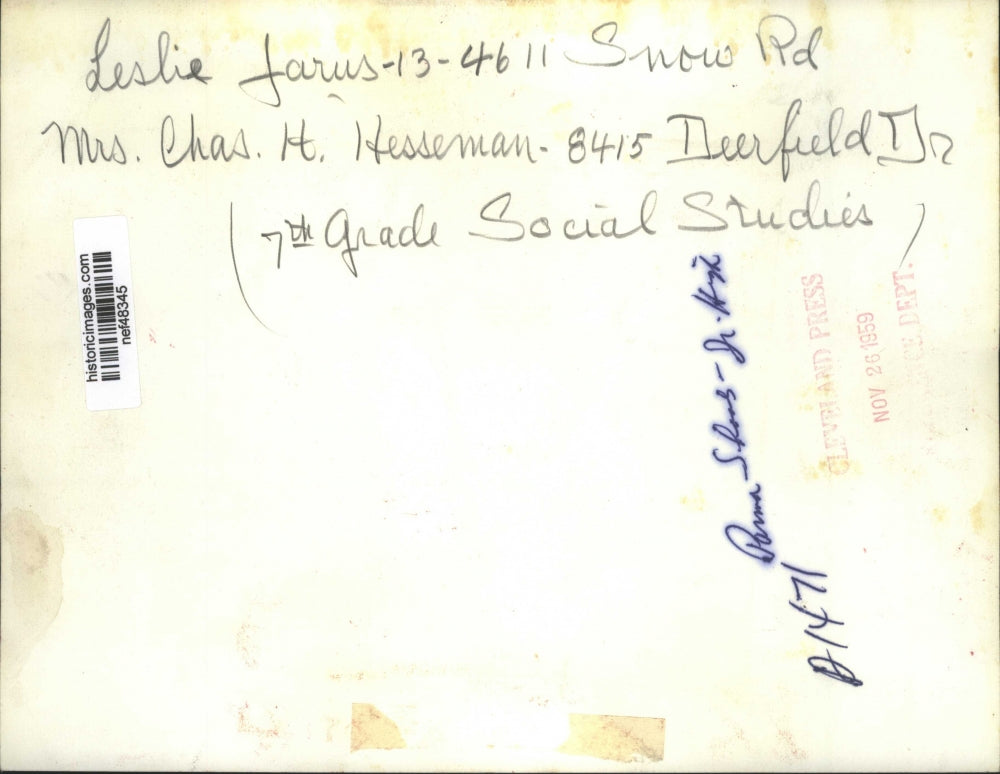 Leslie Jarus-13-4611 Snow Rd
Mrs. Chas. H. Hesseman- 8415 Deerfield Dr
(7th Grade Social Studies)
historicimages.com
nef48345
Parma - Schools - Jr. High
A1471
CLEVELAND PRESS
NOV 26 1959
DEPT.